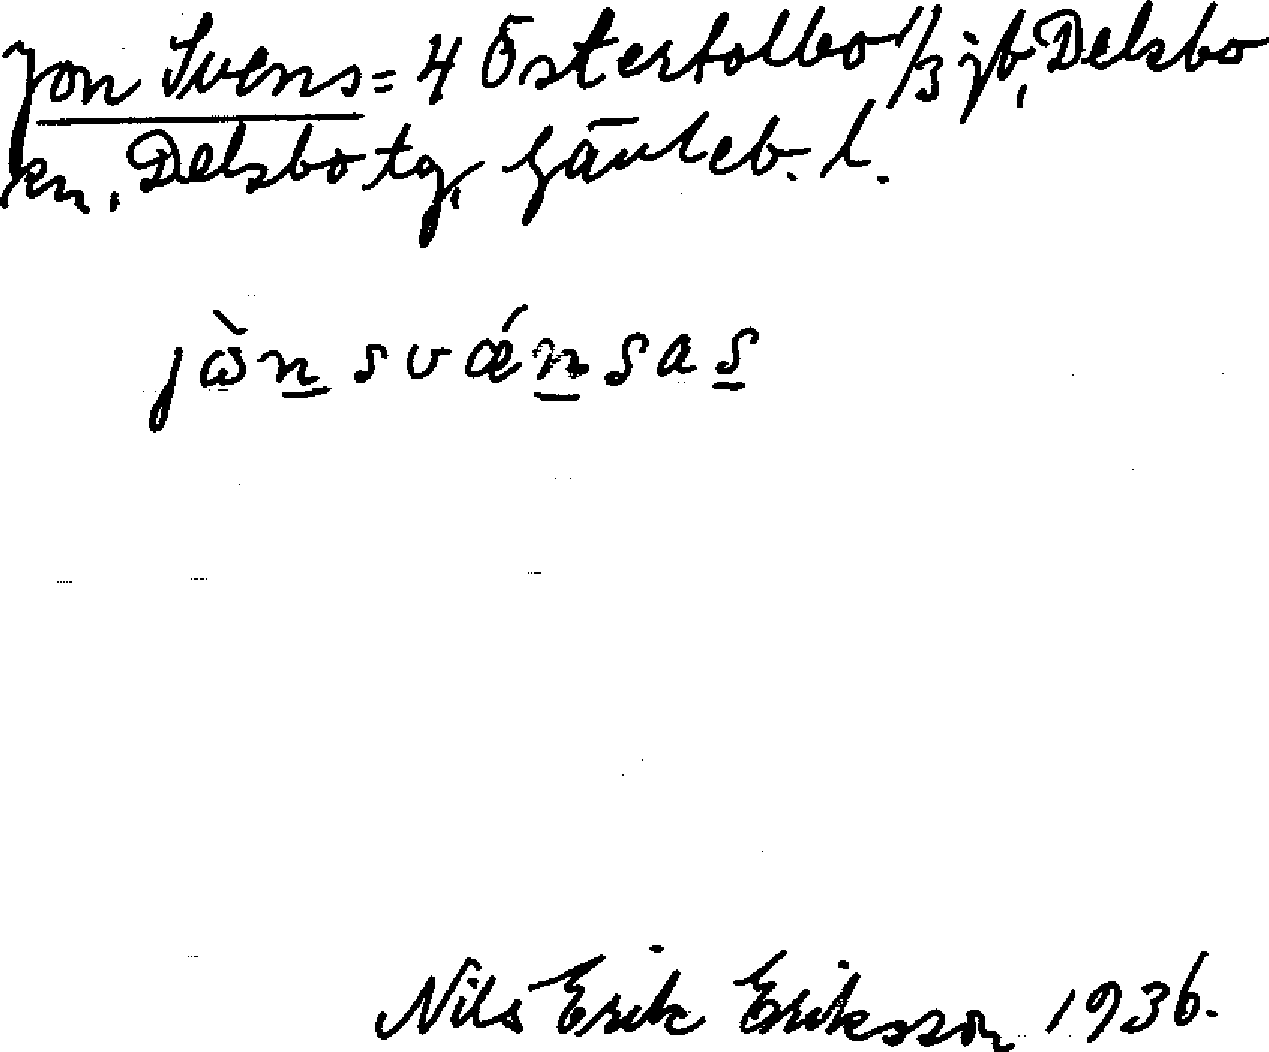 Jon Svens = 4 Östertolbo 1/3 jb, Delsbo
sn, Delsbo tg, Gävleb. l.
jò̱n svǽṉsas̱
Nils Erik Eriksson 1936.